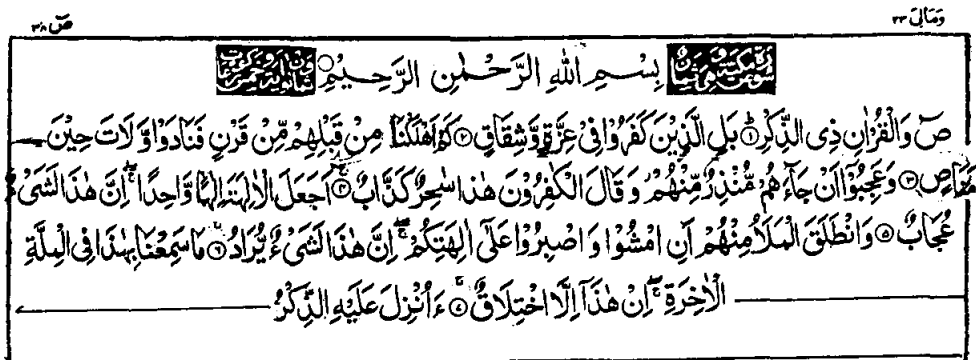 وَمَالِیَ ٢٣ صٓ ٣٨
سورة صٓ مكية وهي ثمان بِسْمِ اللهِ الرَّحْمٰنِ الرَّحِيْمِ وثمانون آية وخمس ركوعات
صٓ وَالْقُرْاٰنِ ذِی الذِّكْرِ ① بَلِ الَّذِيْنَ كَفَرُوْا فِیْ عِزَّةٍ وَّشِقَاقٍ ② كَمْ اَهْلَكْنَا مِنْ قَبْلِهِمْ مِّنْ قَرْنٍ فَنَادَوْا وَّلَاتَ حِيْنَ
مَنَاصٍ ③ وَعَجِبُوْۤا اَنْ جَآءَهُمْ مُّنْذِرٌ مِّنْهُمْ وَقَالَ الْكٰفِرُوْنَ هٰذَا سٰحِرٌ كَذَّابٌ ④ اَجَعَلَ الْاٰلِهَةَ اِلٰهًا وَّاحِدًا ۚ اِنَّ هٰذَا لَشَیْءٌ
عُجَابٌ ⑤ وَانْطَلَقَ الْمَلَاُ مِنْهُمْ اَنِ امْشُوْا وَاصْبِرُوْا عَلٰۤی اٰلِهَتِكُمْ ۚ اِنَّ هٰذَا لَشَیْءٌ يُّرَادُ ⑥ مَا سَمِعْنَا بِهٰذَا فِی الْمِلَّةِ
الْاٰخِرَةِ ۚ اِنْ هٰذَاۤ اِلَّا اخْتِلَاقٌ ⑦ ءَاُنْزِلَ عَلَيْهِ الذِّكْرُ